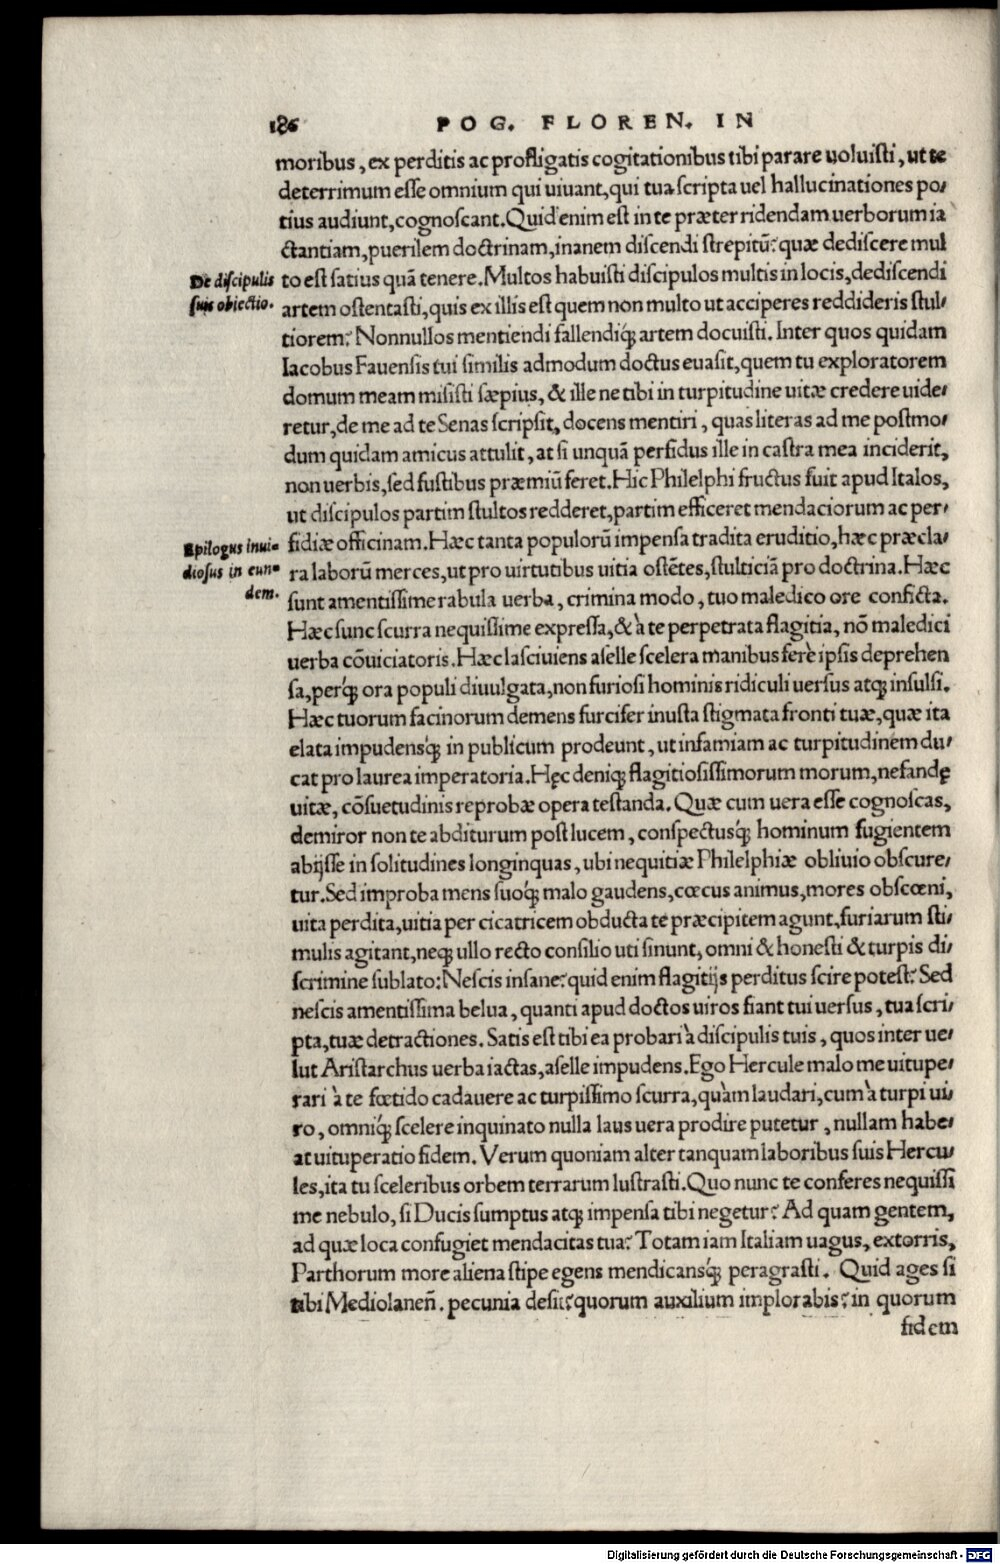 186 POG. FLOREN. IN
moribus, ex perditis ac profligatis cogitationibus tibi parare uoluisti, ut te
deterrimum esse omnium qui uiuant, qui tua scripta uel hallucinationes po/
tius audiunt, cognoscant. Quid enim est in te præter ridendam uerborum ia
ctantiam, puerilem doctrinam, inanem discendi strepitũ? quæ dediscere mul
De discipulis
suis obiectio.
to est satius quã tenere. Multos habuisti discipulos multis in locis, dediscendi
artem ostentasti, quis ex illis est quem non multo ut acciperes reddideris stul/
tiorem? Nonnullos mentiendi fallendiq́; artem docuisti. Inter quos quidam
Iacobus Fauensis tui similis admodum doctus euasit, quem tu exploratorem
domum meam misisti sæpius, & ille ne tibi in turpitudine uitæ credere uide/
retur, de me ad te Senas scripsit, docens mentiri, quas literas ad me postmo/
dum quidam amicus attulit, at si unquã perfidus ille in castra mea inciderit,
non uerbis, sed fustibus præmiũ feret. Hic Philelphi fructus fuit apud Italos,
ut discipulos partim stultos redderet, partim efficeret mendaciorum ac per/
Epilogus inui-
diosus in eun-
dem.
fidiæ officinam. Hæc tanta populorũ impensa tradita eruditio, hæc præcla/
ra laborũ merces, ut pro uirtutibus uitia ostẽtes, stulticiã pro doctrina. Hæc
sunt amentissime rabula uerba, crimina modo, tuo maledico ore conficta.
Hæc sunc scurra nequissime expressa, & à te perpetrata flagitia, nõ maledici
uerba cõuiciatoris. Hæc lasciuiens aselle scelera manibus ferè ipsis deprehen
sa, perq́; ora populi diuulgata, non furiosi hominis ridiculi uersus atq; insulsi.
Hæc tuorum facinorum demens furcifer inusta stigmata fronti tuæ, quæ ita
elata impudensq́; in publicum prodeunt, ut infamiam ac turpitudinem du/
cat pro laurea imperatoria. Hęc deniq; flagitiosissimorum morum, nefandę
uitæ, cõsuetudinis reprobæ opera testanda. Quæ cum uera esse cognoscas,
demiror non te abditurum post lucem, conspectusq́; hominum fugientem
abijsse in solitudines longinquas, ubi nequitiæ Philelphiæ obliuio obscure/
tur. Sed improba mens suoq́; malo gaudens, cœcus animus, mores obscœni,
uita perdita, uitia per cicatricem obducta te præcipitem agunt, furiarum sti/
mulis agitant, neq; ullo recto consilio uti sinunt, omni & honesti & turpis di/
scrimine sublato: Nescis insane? quid enim flagitijs perditus scire potest? Sed
nescis amentissima belua, quanti apud doctos uiros fiant tui uersus, tua scri/
pta, tuæ detractiones. Satis est tibi ea probari à discipulis tuis, quos inter ue/
lut Aristarchus uerba iactas, aselle impudens. Ego Hercule malo me uitupe/
rari à te fœtido cadauere ac turpissimo scurra, quàm laudari, cum à turpi ui/
ro, omniq́; scelere inquinato nulla laus uera prodire putetur, nullam habe/
at uituperatio fidem. Verum quoniam alter tanquam laboribus suis Hercu/
les, ita tu sceleribus orbem terrarum lustrasti. Quo nunc te conferes nequissi
me nebulo, si Ducis sumptus atq; impensa tibi negetur? Ad quam gentem,
ad quæ loca confugiet mendacitas tua? Totam iam Italiam uagus, extorris,
Parthorum more aliena stipe egens mendicansq́; peragrasti. Quid ages si
tibi Mediolaneñ. pecunia desit? quorum auxilium implorabis? in quorum
fidem
Digitalisierung gefördert durch die Deutsche Forschungsgemeinschaft - DFG